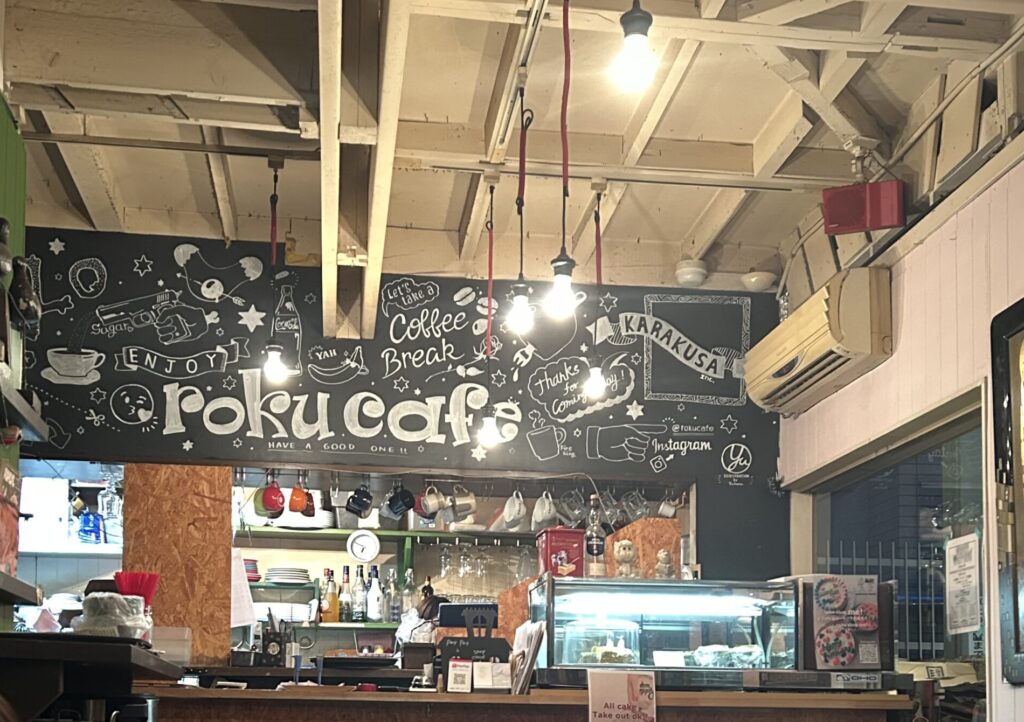 Let's
take a
Coffee
Break
Sugar
ENJOY
YAH
KARAKUSA
Inc.
Thanks
for
Coming
roku cafe
HAVE A GOOD ONE!!
Fire
King
@rokucafe
Instagram
Yu
HOHO
All cake
Take out ok